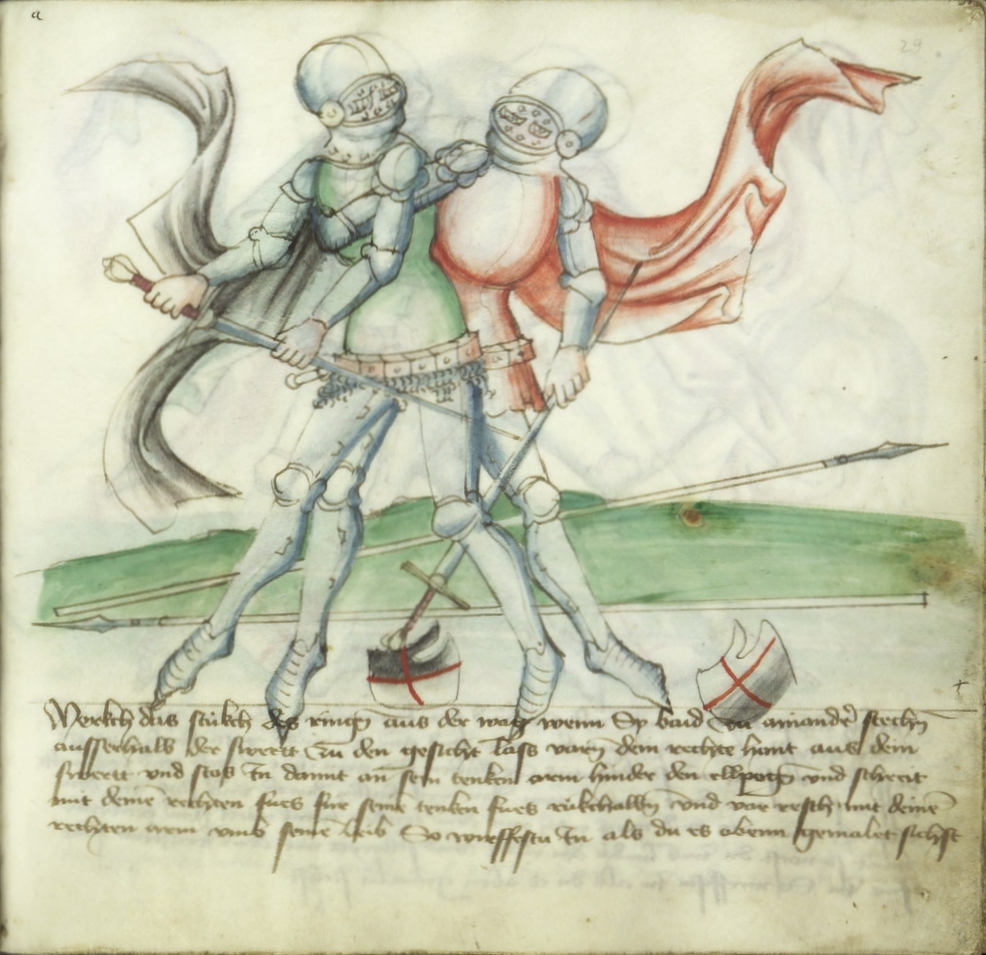 a
29
Merckh das stukch des ringñ aus der wag wenn Sy baid zu ainandͤ stechñ
ausserhalb der swertt zu den gesicht lass varñ dein rechte hant aus dem
swertt vnd stos In damit an sein tenken arm hinder den ellpogñ vnd schreit
mit deinē rechten fues für seinē tenken fues rükchalbñ vnd var resch mit deinē
rechten arm vmb seinē leib So wirffestu In als du es obenn gemalet sichst